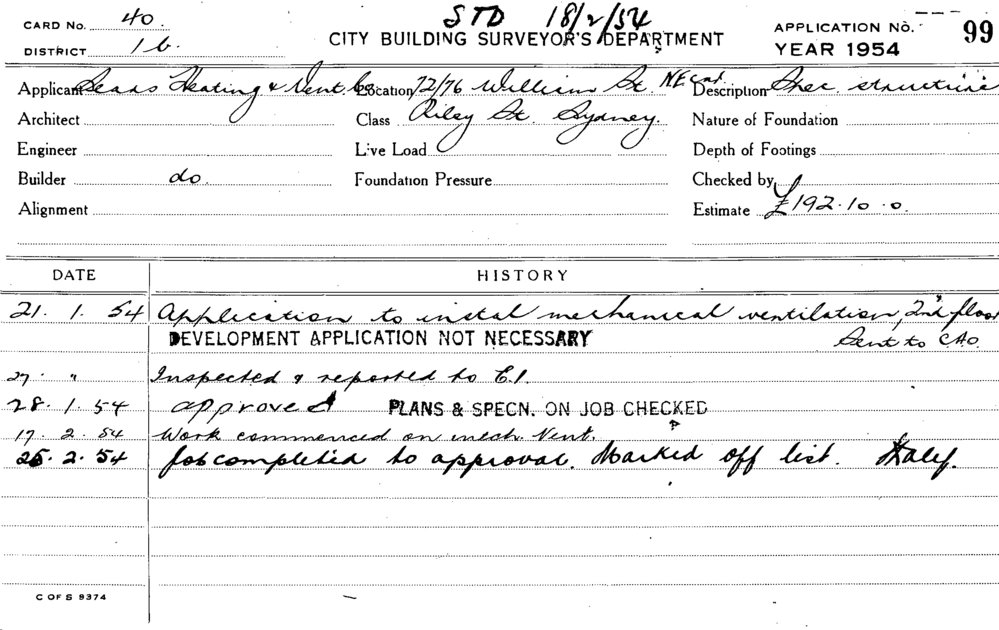 CARD No. 40.
STD 18/2/54
APPLICATION No. 99
DISTRICT 1b.
CITY BUILDING SURVEYOR'S DEPARTMENT
YEAR 1954
Applicant Sears Heating & Vent Co Location 72/76 William St. NE cnr. Description Spec. structure
Architect Class Riley St. Sydney. Nature of Foundation
Engineer Live Load Depth of Footings
Builder do. Foundation Pressure Checked by
Alignment Estimate £192.10.0.
DATE HISTORY
21. 1. 54 Application to instal mechanical ventilation, 2nd floor
DEVELOPMENT APPLICATION NOT NECESSARY Sent to C.A.O.
27. " Inspected & reported to E.I.
28. 1. 54 approved PLANS & SPECN. ON JOB CHECKED
17. 2. 54 Work commenced on mech. Vent.
25. 2. 54 Job completed to approval. Marked off list.
C OF S 9374